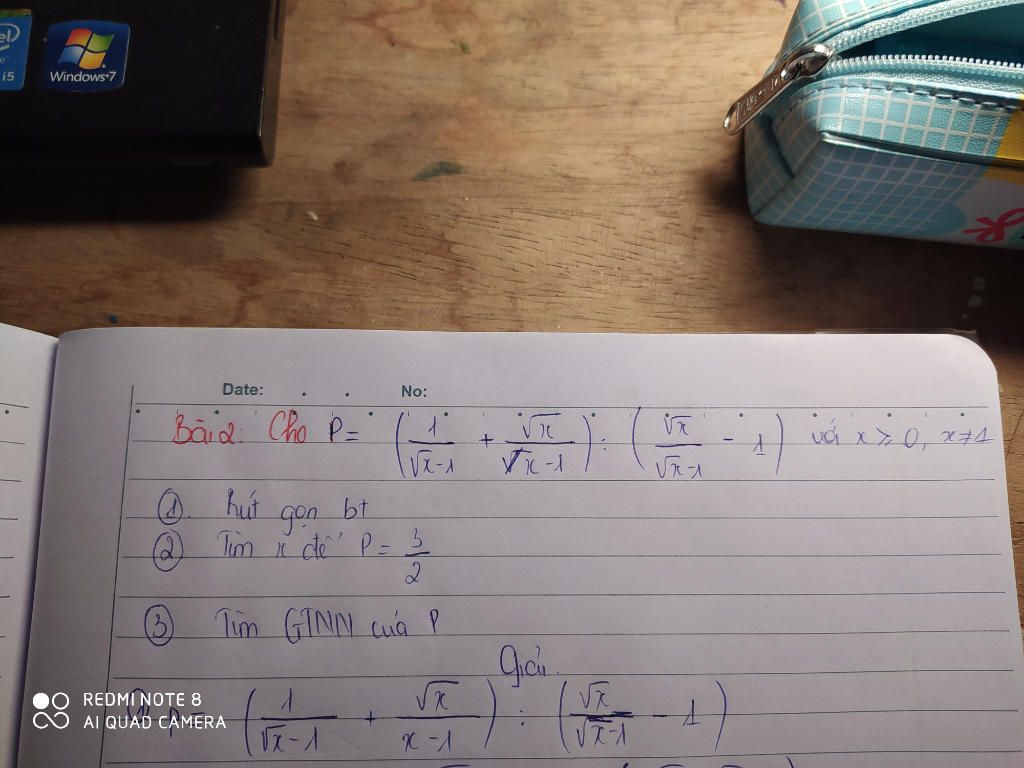 intel
i5
Windows 7
Date: No:
Bài 2: Cho P = (1/(√x-1) + √x/(x-1)) : (√x/(√x-1) - 1) với x ⩾ 0, x ≠ 1
① Rút gọn bt
② Tìm x để P = 3/2
③ Tìm GTNN của P
Giải
P (1/(√x-1) + √x/(x-1)) : (√x/(√x-1) - 1)
REDMI NOTE 8
AI QUAD CAMERA